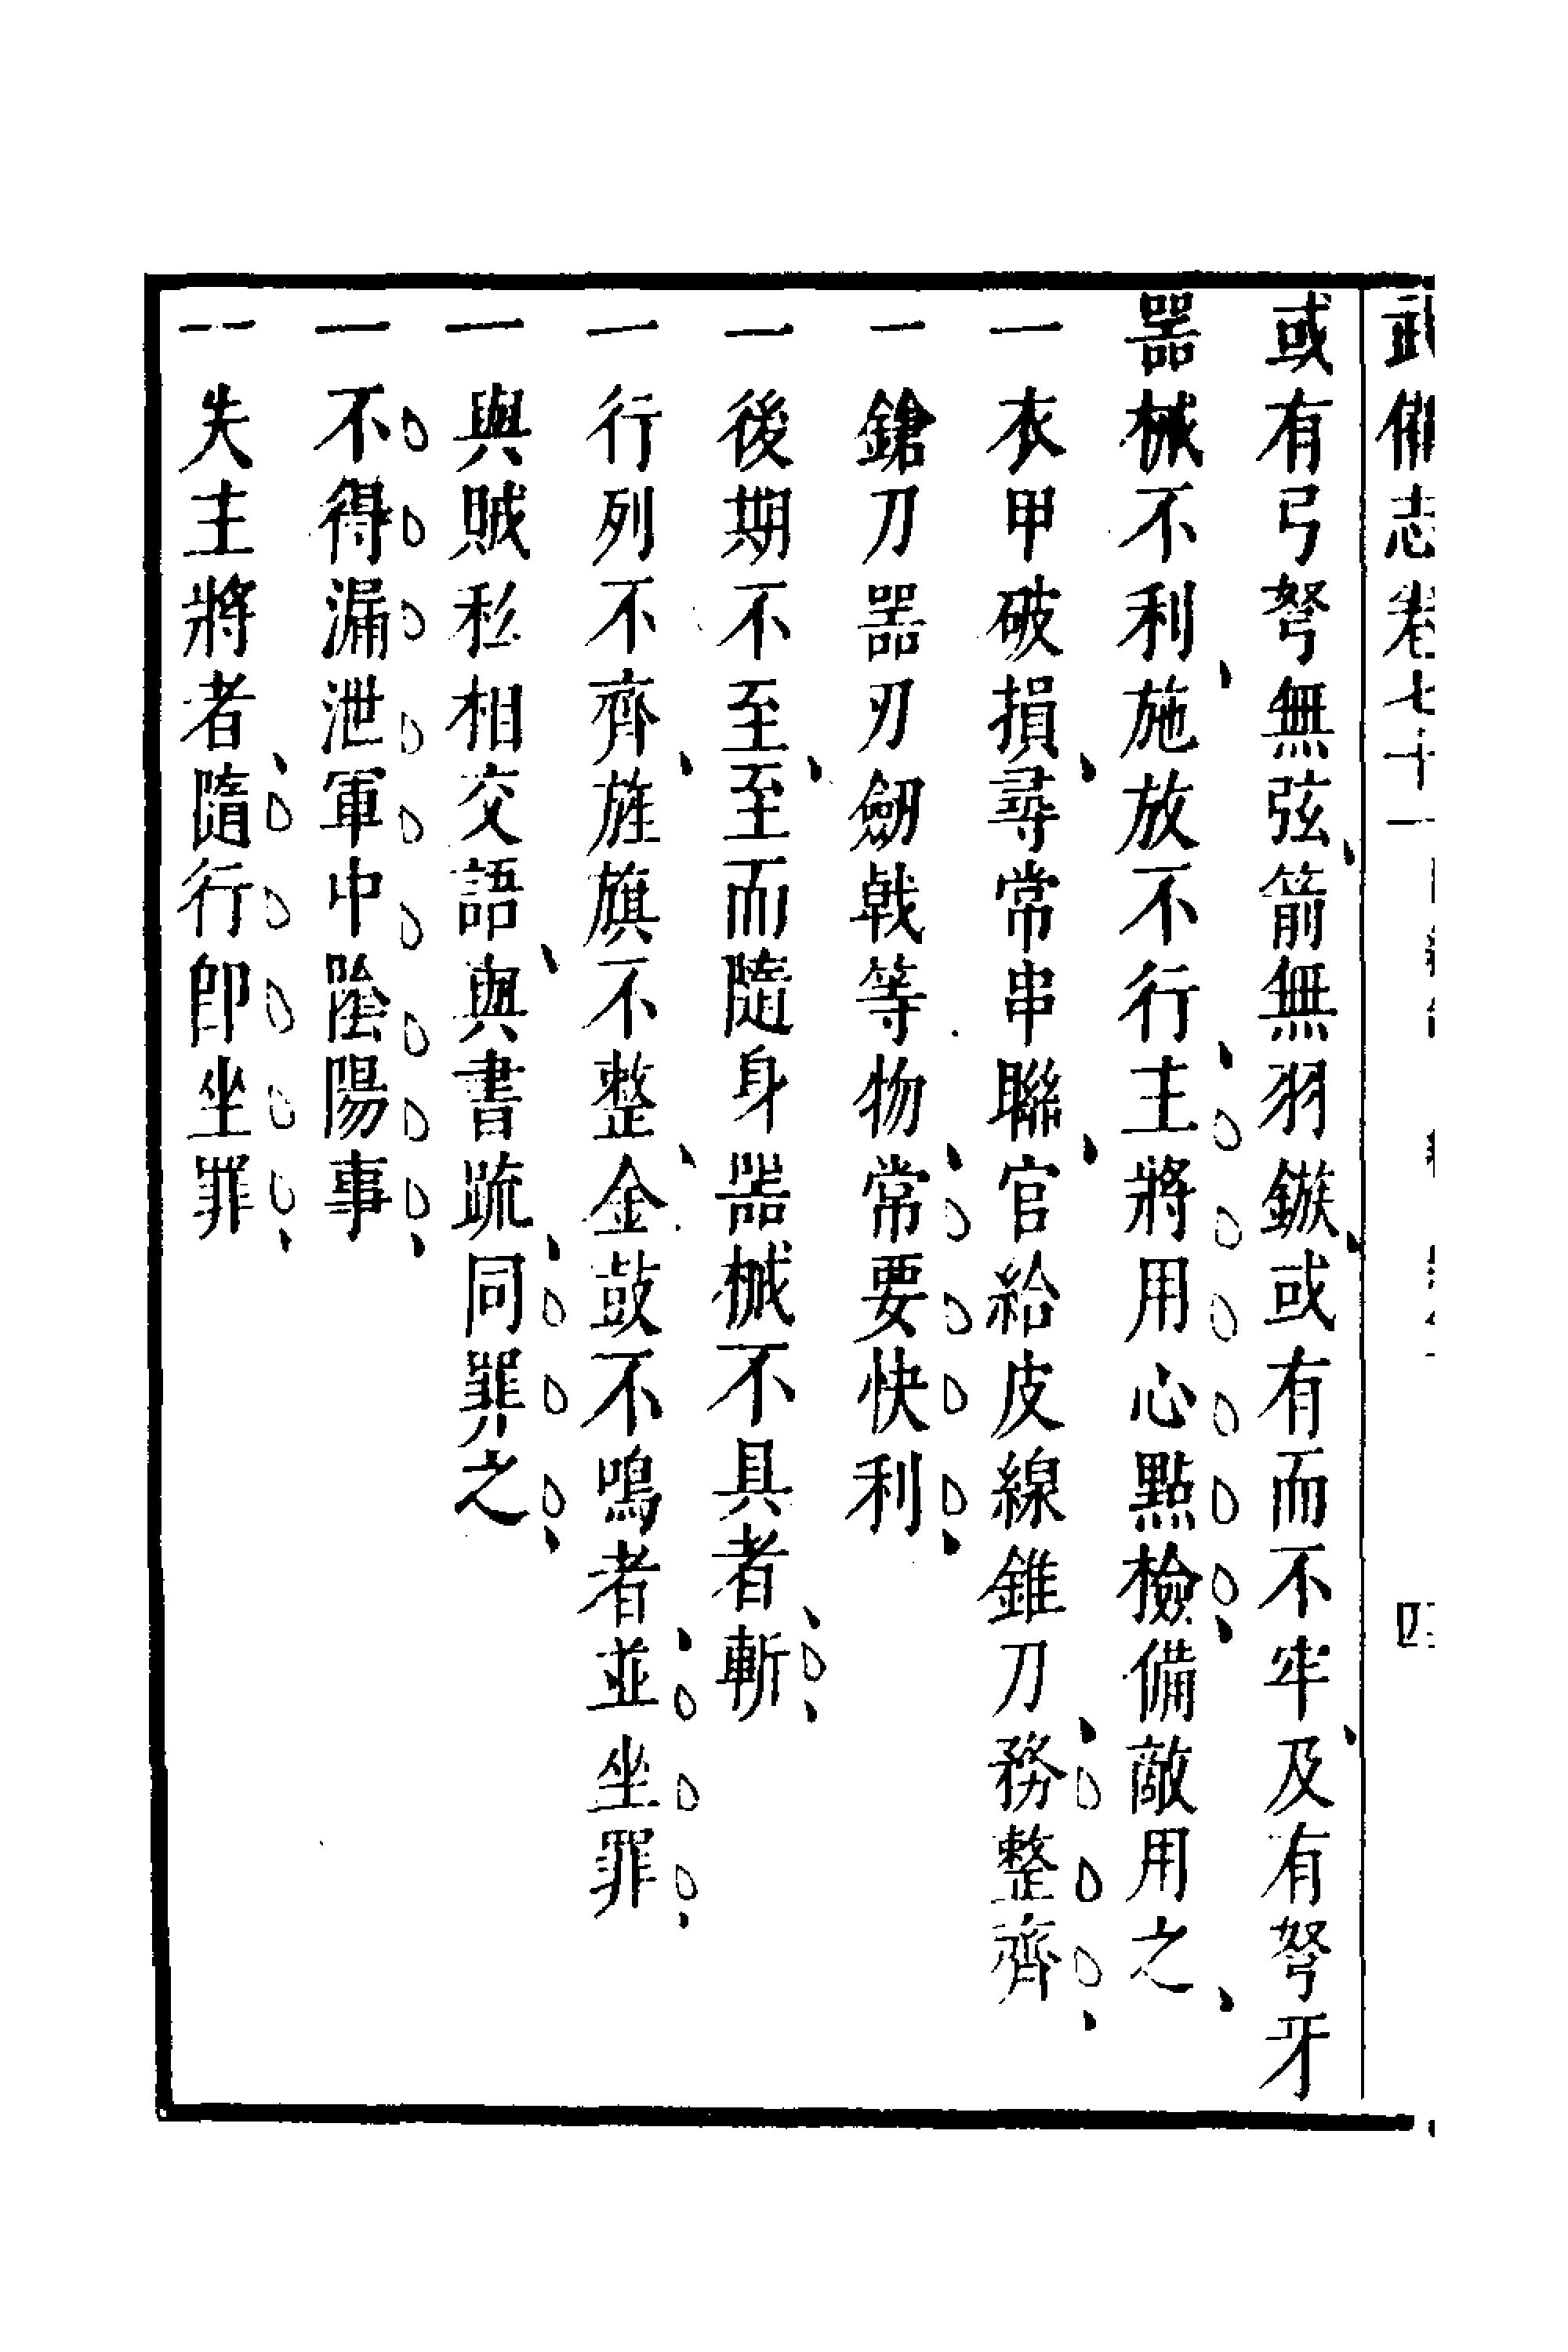 武備志卷七十一
四
或有弓弩無弦箭無羽鏃或有而不牢及有弩牙
器械不利施放不行主將用心點檢備敵用之
一衣甲破損尋常串聯官給皮線錐刀務整齊
一鎗刀器刃劒戟等物常要快利
一後期不至至而隨身器械不具者斬
一行列不齊旌旗不整金鼓不鳴者並坐罪
一與賊私相交語與書䟽同罪之
一不得漏泄軍中陰陽事
一失主將者隨行卽坐罪